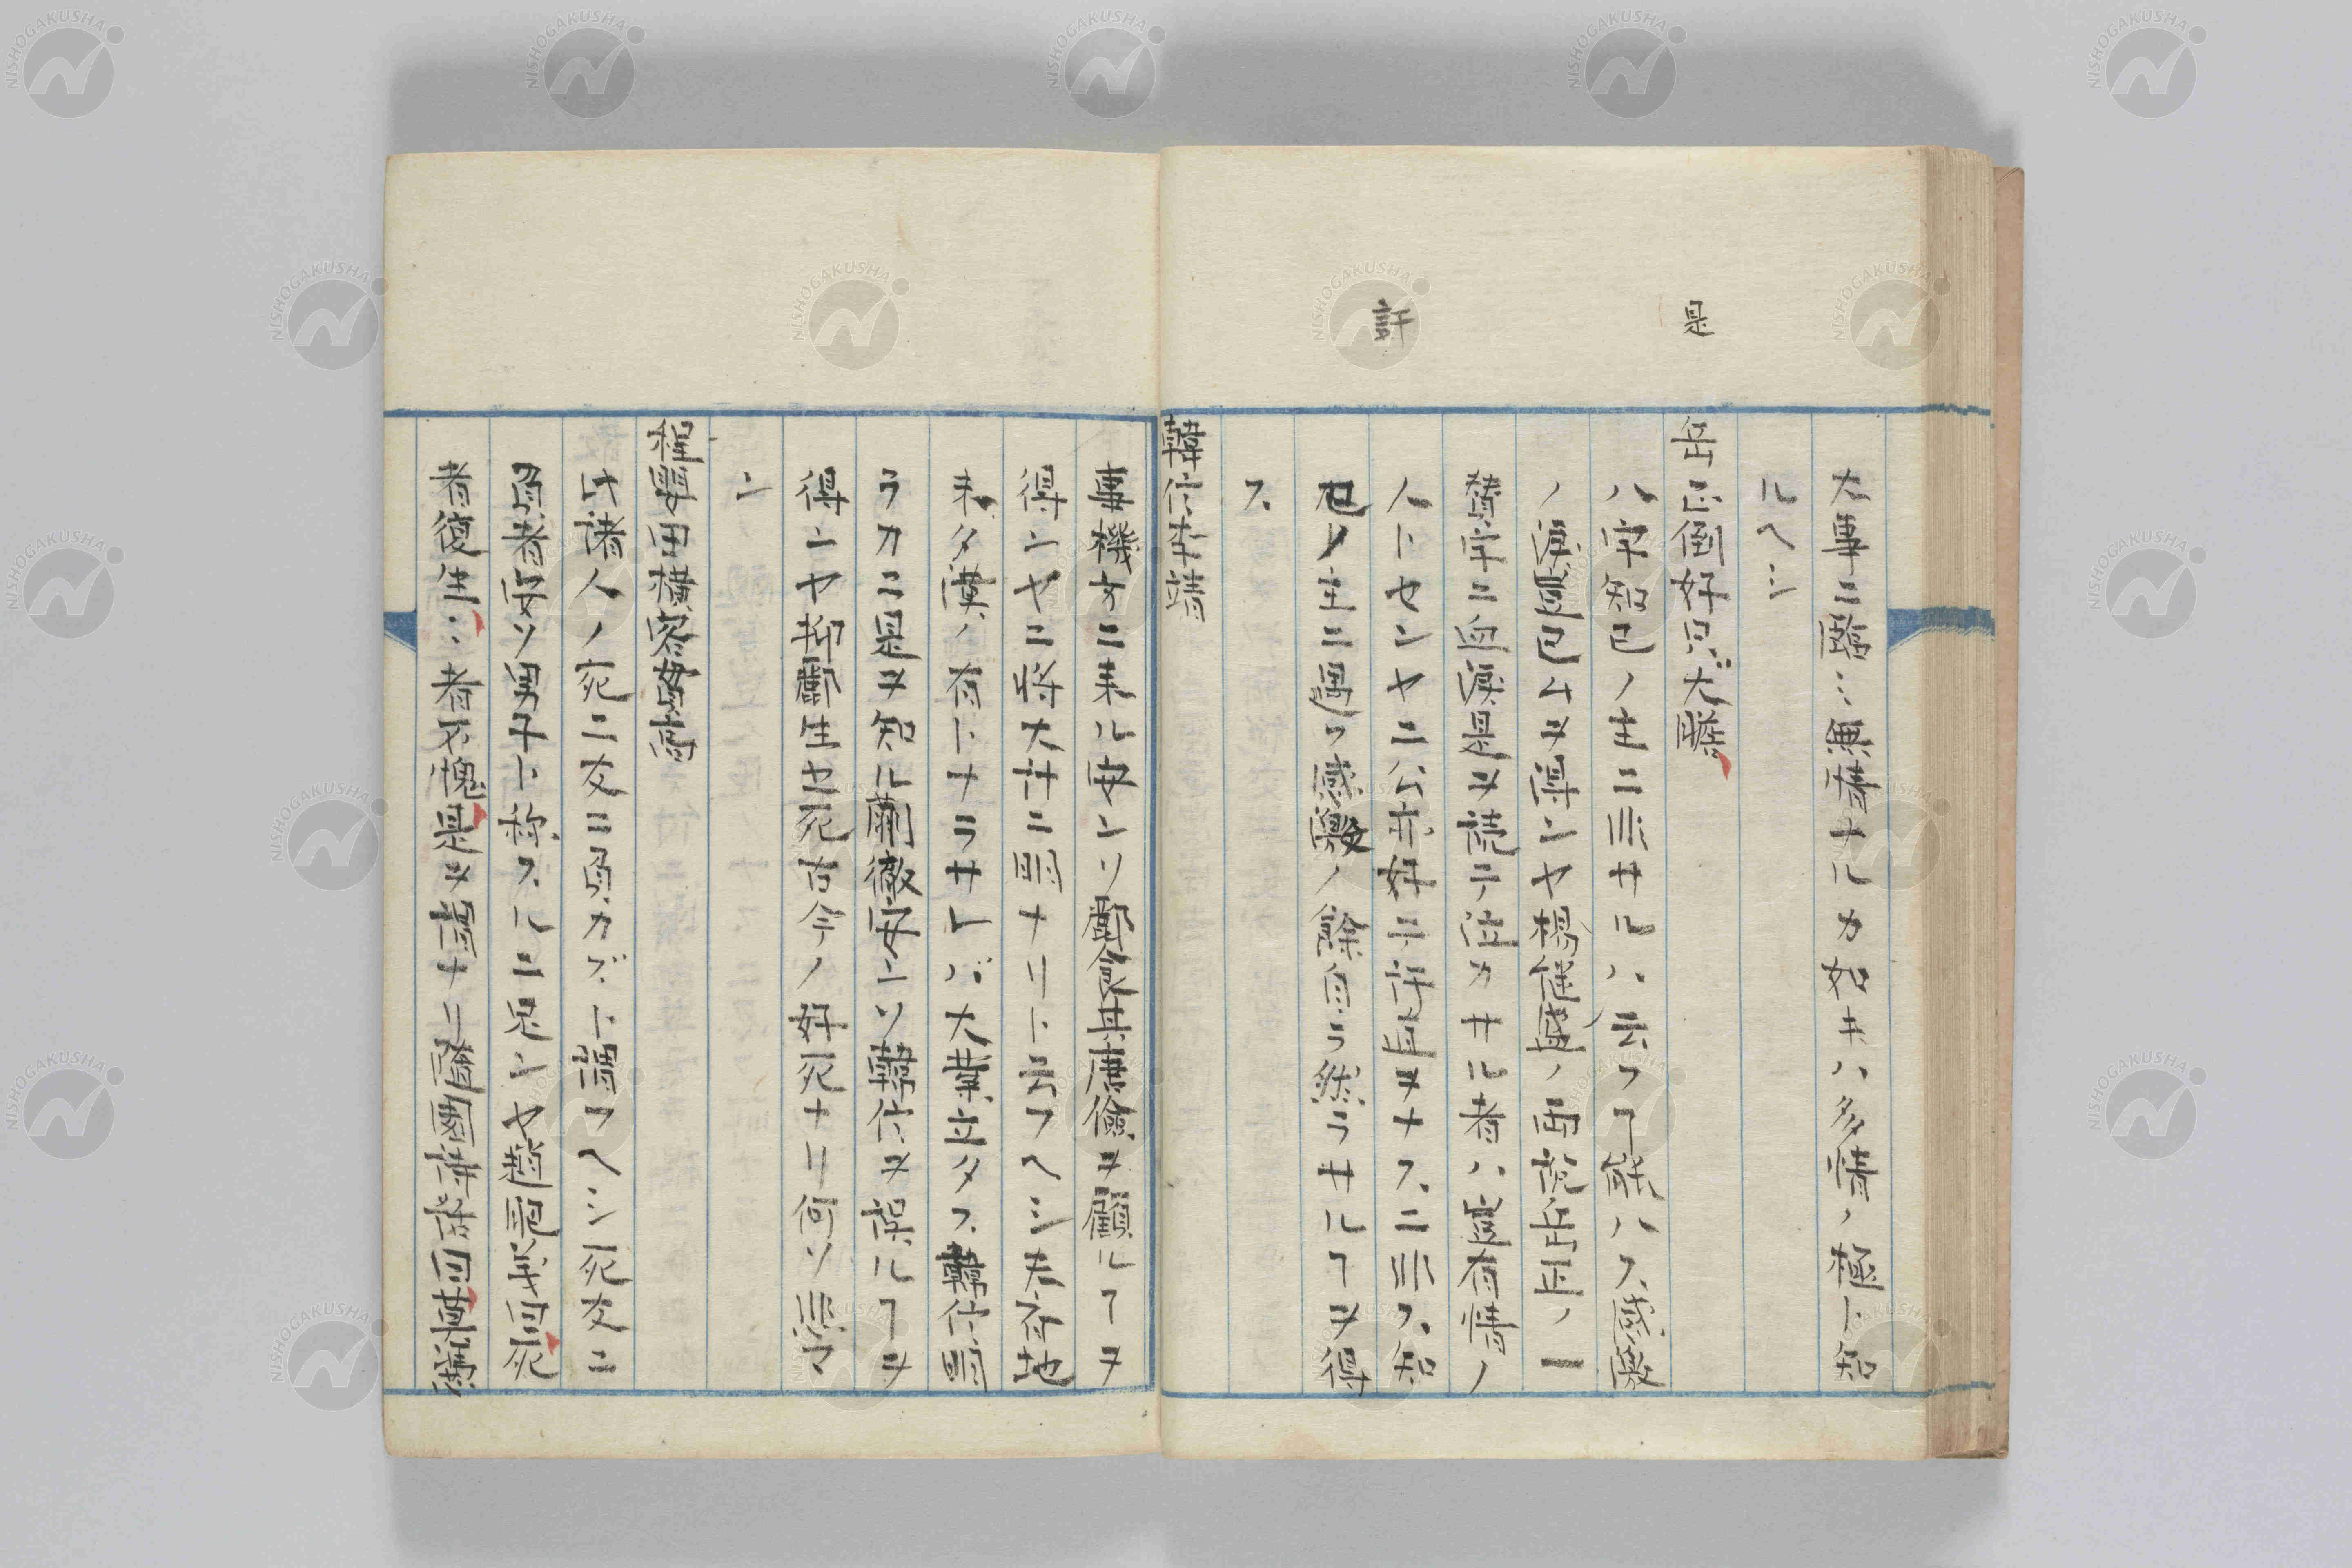 是
許
大事ニ臨ミ無情ナルカ如キハ多情ノ極ト知
ルヘシ
岳正倒好只ダ大膽
ハ字知己ノ主ニ非サルハ云フヿ能ハス感激
ノ涙豈已ムヲ得ンヤ楊継盛ノ両説岳正ノ一
賛字ニ血涙是ヲ読テ泣カサル者ハ豈有情ノ
人トセンヤニ公亦好テ訐直ヲナスニ非ス知
己ノ主ニ遇フ感激ノ餘自ラ然ラサルヿヲ得
ス
韓信李靖
事機方ニ来ル安ンソ酈食其唐儉ヲ顧ルヿヲ
得ンヤニ将大計ニ明ナリト云フヘシ夫存地
未タ漢ノ有トナラサレバ大業立タス韓信明
ラカニ是ヲ知ル蒯徹安ンソ韓信ヲ誤ルヿヲ
得ンヤ抑酈生ヤ死古今ノ好死ナリ何ソ悲マ
ン
程嬰田横客
此諸人ノ死ニ友ニ負カズト謂フヘシ死友ニ
負者安ソ男子ト称スルニ足ンヤ趙
者復生ミ者不愧是ヲ謂ナリ